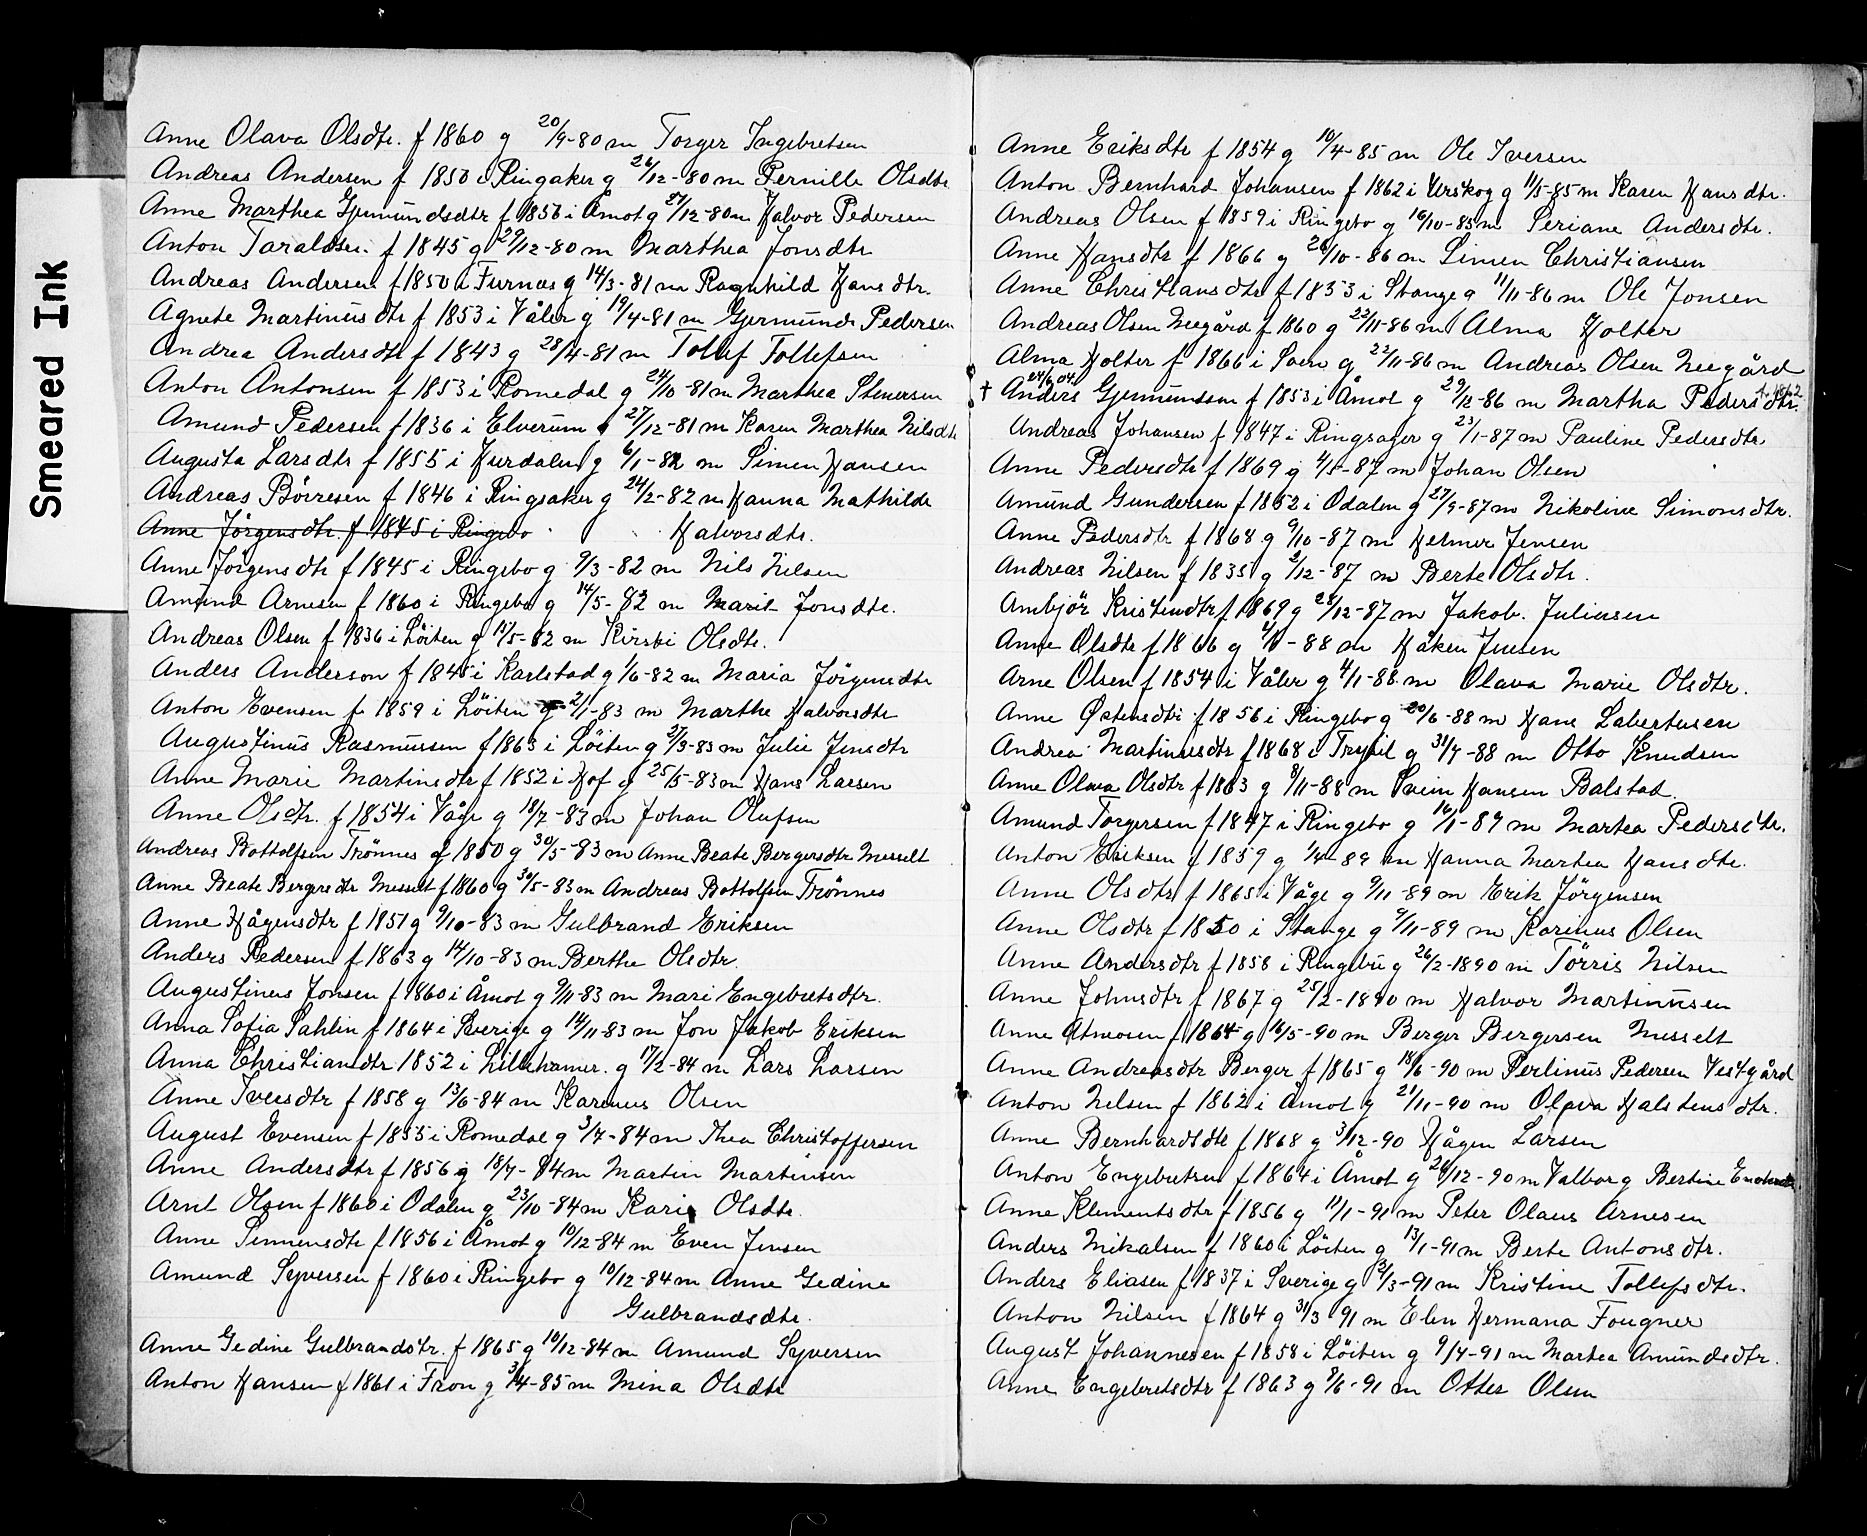 Smeared Ink
Anne Olava Olsdtr. f 1860 g 20/9-80 m Torger Ingebretsen
Andreas Andersen f 1850 i Ringsaker g 26/12-80 m Pernille Olsdtr
Anne Marthea Gjermundsdtr f 1856 i Åmot g 27/12-80 m Halvor Pedersen
Anton Taraldsen f 1845 g 29/12-80 m Marthea Jonsdtr
Andreas Andersen f 1850 i Furnæs g 14/3-81 m Ragnhild Hansdtr.
Agnete Martinusdtr f 1853 i Våler g 19/4-81 m Gjermund Pedersen
Andrea Andersdtr f 1843 g 28/4-81 m Tollef Tollefsen
Anton Antonsen f 1853 i Romedal g 24/10-81 m Marthea Stenersen
Amund Pedersen f 1836 i Elverum g 27/12-81 m Karen Marthea Nilsdtr
Augusta Larsdtr f 1855 i Hurdalen g 6/1-82 m Simen Hansen
Andreas Börresen f 1846 i Ringsaker g 24/2-82 m Hanna Mathilde
Anne Jörgensdtr. f 1845 i Ringebo Halvorsdtr.
Anne Jörgensdtr f 1845 i Ringebo g 9/3-82 m Nils Nilsen
Amund Arnesen f 1860 i Ringebo g 14/5-82 m Marit Jonsdtr.
Andreas Olsen f 1836 i Löiten g 15/5-82 m Kirsti Olsdtr.
Anders Anderson f 1845 i Karlstad g 1/6-82 m Maria Jörgensdtr
Anton Evensen f 1859 i Löiten g 2/1-83 m Marthe Halvorsdtr
Augustinus Rasmussen f 1863 i Löiten g 2/3-83 m Julie Jensdtr
Anne Marie Martinsdtr f 1852 i Hof g 25/5-83 m Hans Larsen
Anne Olsdtr. f 1854 i Våge g 18/7-83 m Johan Olufsen
Andreas Bottolfsen Trönnes f 1850 g 30/5-83 m Anne Beate Bergersdtr Messelt
Anne Beate Bergersdtr Messelt f 1860 g 30/5-83 m Andreas Bottolfsen Trönnes
Anne Hågensdtr f 1851 g 9/10-83 m Gulbrand Eriksen
Anders Pedersen f 1863 g 14/10-83 m Berthe Olsdtr.
Augustinus Jonsen f 1860 i Åmot g 9/11-83 m Mari Engebretsdtr.
Anna Sofia Sahlin f 1864 i Sverige g 14/11-83 m Jon Jakob Eriksen
Anna Christiandtr 1852 i Lillehamer. g 17/2-84 m Lars Larsen
Anne Iversdtr f 1858 g 13/6-84 m Karinus Olsen
August Evensen f 1855 i Romedal g 3/7-84 m Thea Christoffersen
Anne Andersdtr f 1856 g 18/7-84 m Martin Martinsen
Arnt Olsen f 1860 i Odalen g 23/10-84 m Kari Olsdtr.
Anne Simensdtr f 1856 i Åmot g 10/12-84 m Even Jensen
Amund Syversen f 1860 i Ringebo g 10/12-84 m Anne Gedine
Gulbrandsdtr.
Anne Gedine Gulbrandsdtr. f 1865 g 10/12-84 m Amund Syversen
Anton Hansen f 1861 i Fron g 3/4-85 m Mina Olsdtr
Anne Eriksdtr f 1854 g 10/4-85 m Ole Iversen
Anton Bernhard Johansen f 1862 i Urskog g 11/5-85 m Karen Hansdtr.
Andreas Olsen f 1859 i Ringebo g 16/10-85 m Seriane Andersdtr.
Anne Hansdtr f 1866 g 26/10-86 m Simen Christiansen
Anne Christiansdtr f 1853 i Stange g 11/11-86 m Ole Jonsen
Andreas Olsen Neegård f 1860 g 22/11-86 m Alma Holter
Alma Holter f 1866 i Soen g 22/11-86 m Andreas Olsen Neegård
† 24/6 04 Anders Gjermundsen f 1853 i Åmot g 29/12-86 m Martha Pedersdtr. f. 1862
Andreas Johansen f 1847 i Ringsager g 23/1-87 m Pauline Pedersdtr
Anne Pedersdtr f 1869 g 4/5-87 m Johan Olsen
Amund Gundersen f 1852 i Odalen g 27/9-87 m Nikoline Simonsdtr.
Anne Pedersdtr f 1868 g 9/10-87 m Helmer Jensen
Andreas Nilsen f 1835 g 2/12-87 m Berte Olsdtr.
Ambjör Kristendtr f 1869 g 28/12-87 m Jakob. Juliusen
Anne Olsdtr f 1866 g -88 m Håken Jensen
Arne Olsen f 1854 i Våler g 4/11-88 m Olava Marie Olsdtr.
Anne Østensdtr f 1856 i Ringebo g 20/6-88 m Hans Labertusen
Andrea Martinusdtr f 1868 i Trysil g 31/7-88 m Otto Knudsen
Anne Olava Olsdtr f 1863 g 8/11-88 m Svein Hansen Balstad.
Amund Torgersen f 1847 i Ringebo g 16/1-89 m Martea Pedersdtr.
Anton Eriksen f 1859 g 1/4-89 m Hanna Martea Hansdtr.
Anne Olsdtr f 1865 i Våge g 9/11-89 m Erik Jörgensen
Anne Olsdtr f 1850 i Stange g 9/11-89 m Karinus Olsen
Anne Andersdtr f 1858 i Ringebu g 26/2-1890 m Törris Nilsen
Anne Johnsdtr f 1867 g 25/2-1890 m Halvor Martinusen
Anne f 1864 g 16/5-90 m Berger Bergersen Messelt
Anne Andreasdtr Berger f 1865 g 18/6-90 m Perlinus Pedersen Vestgård
Anton Nilsen f 1862 i Åmot g 21/11-90 m Olava Halstensdtr.
Anne Bernhardtdtr f 1868 g 3/12-90 Hågen Larsen
Anton Engebretsen f 1864 i Åmot g 26/12-90 m Valborg Bertine
Anne Klementsdtr f 1856 g 11/1-91 m Peter Olaus Arnesen
Anders Mikalsen f 1860 i Löiten g 13/1-91 m Berte Antonsdtr.
Anders Eliasen f 1837 i Sverige g 3/3-91 m Kristine Tollefsdtr.
Anton Nilsen f 1864 g 31/3 91 m Elen Hermana Fougner
August Johannesen f 1858 i Löiten g 9/4-91 m Martea Amundsdtr.
Anne Engebretsdtr f 1863 g 8/6-91 m Otter Olsen